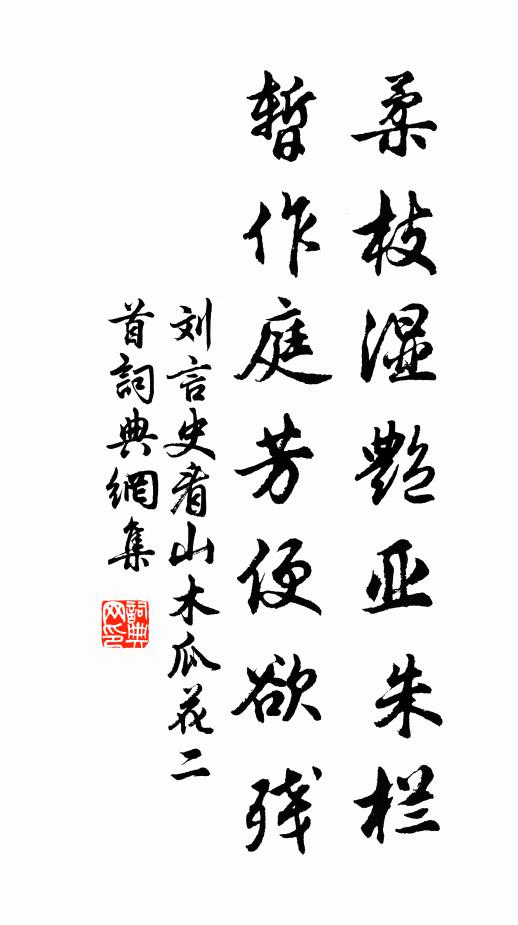 柔枝湿艳亚朱栏
暂作庭芳便欲残
刘言史看山木瓜花二
首詞典網集
詞典
网印